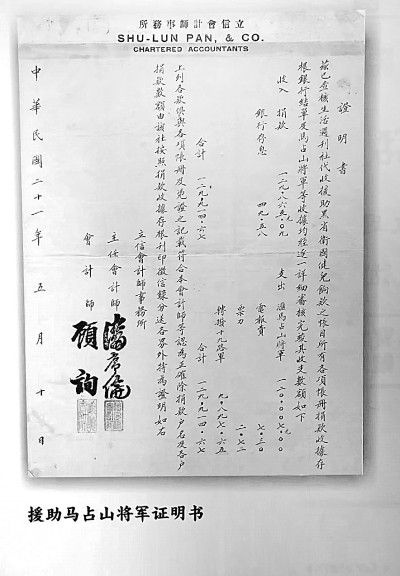 立信會計師事務所
SHU-LUN PAN, & CO.
CHARTERED ACCOUNTANTS
證明書
茲已查核生活週刊社代收援助黑省衛國健兒餉款之帳目所有各項帳冊捐款收據存
根銀行結單及馬占山將軍等收據均經逐一詳細審核完竣其收支數額如下
收入 捐款 一二九・八六五・〇九元
銀行存息 四九・五八
合計 一二九・九一四・六七
支出 滙馬占山將軍 一二〇・〇〇七・〇〇元
電報費 七・三〇
票力 二・七二
轉撥十九路軍 九・八九七・六五
合計 一二九・九一四・六七
上列各款俱與各項帳冊及憑證之記載符合本會計師等認為正確除捐款戶名及各戶
捐款數額由該社按照捐款收據存根刊印徵信錄分送各界外特為證明如右
立信會計師事務所
主任會計師 潘序倫
會計師 顧詢
中華民國二十一年五月十日
援助马占山将军证明书